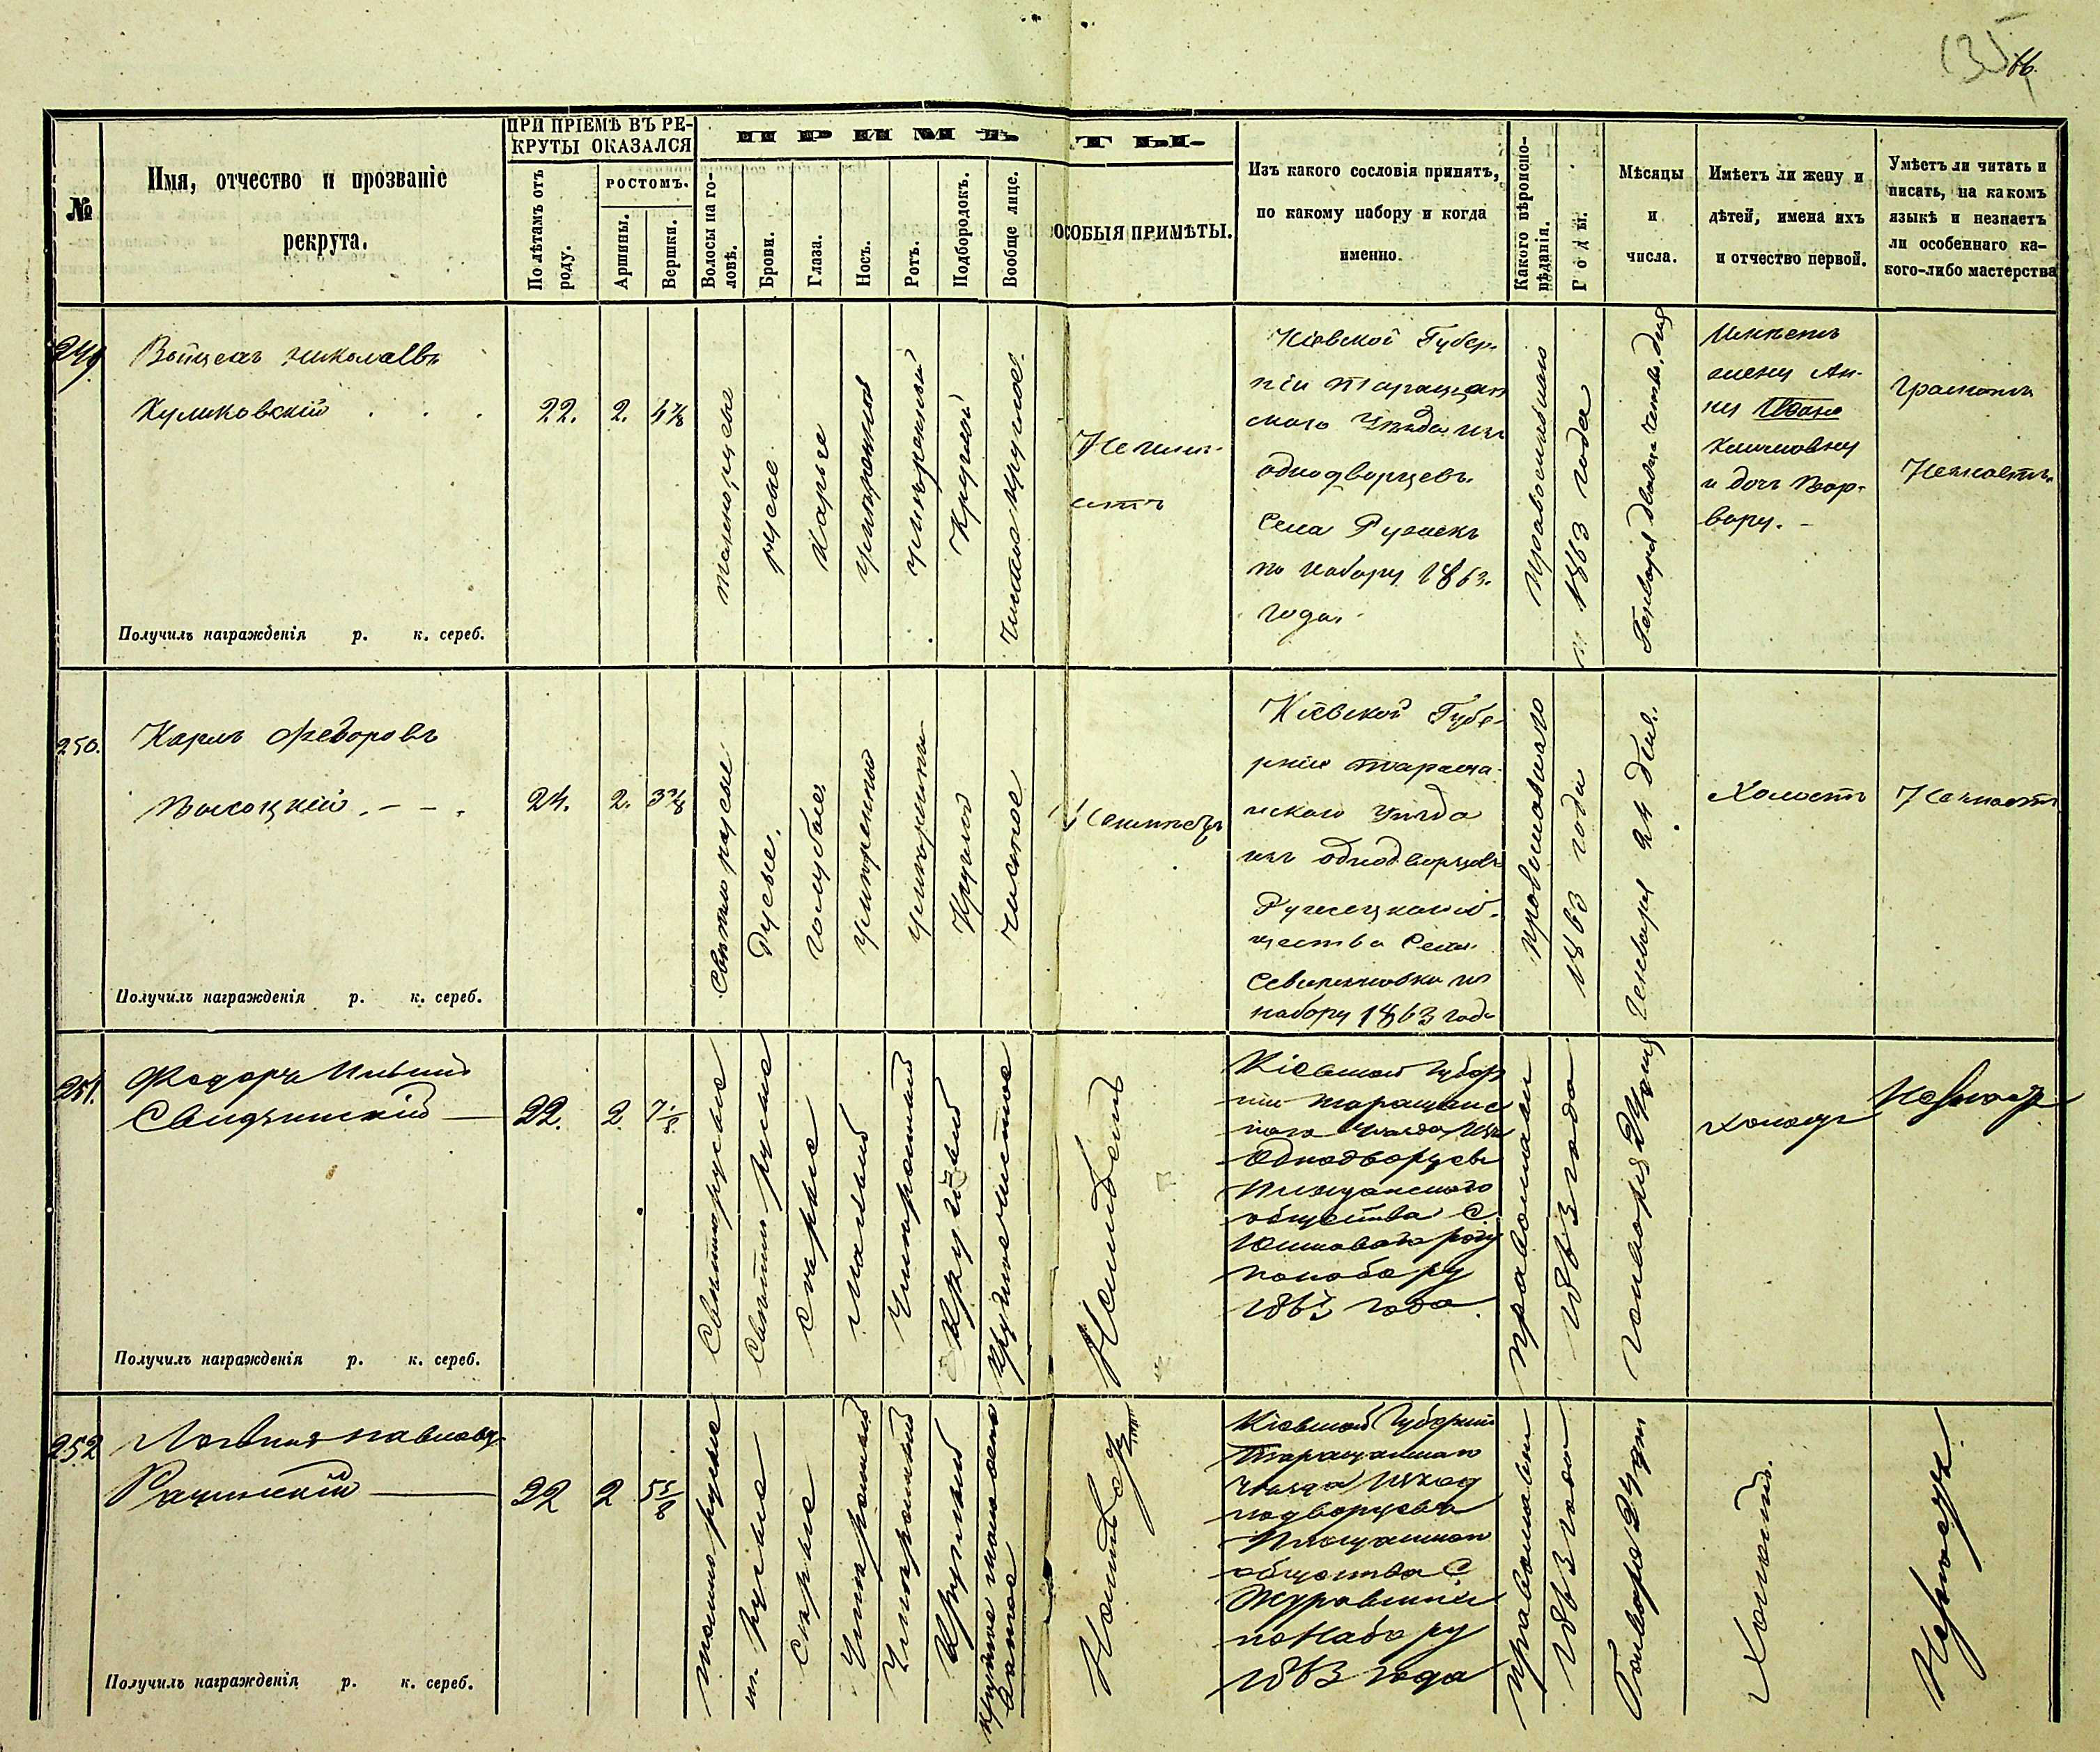 66.
ПРИ ПРІЕМѢ ВЪ РЕ-
КРУТЫ ОКАЗАЛСЯ
ПРИМѢТЫ.
№
Имя, отчество и прозваніе
рекрута.
По лѣтамъ отъ
роду.
РОСТОМЪ.
Аршины.
Вершки.
Волосы на го-
ловѣ.
Брови.
Глаза.
Носъ.
Ротъ.
Подбородокъ.
Вообще лице.
ОСОБЫЯ ПРИМѢТЫ.
Изъ какого сословія принятъ,
по какому набору и когда
именно.
Какого вѣроиспо-
вѣданія.
Годы.
Мѣсяцы
и
числа.
Имѣетъ ли жену и
дѣтей, имена ихъ
и отчество первой.
Умѣетъ ли читать и
писать, на какомъ
языкѣ и незнаетъ
ли особеннаго ка-
кого-либо мастерства
249
Войцехъ Николаевъ
Куликовскій
22.
2.
4 7/8
темнорусые
русые
Карые
умѣренный
умѣренный
Круглый
Чистое круглое.
Неимѣ-
етъ
Кіевской Губер-
ніи Таращан
скаго Уѣзда изъ
однодворцевъ
Села
по набору 1863.
года.
Православнаго
1863 года
Генваря двадцать четвертаго дня
Имѣетъ
жену Ан-
ну
и дочь Вар-
вару.
Грамотѣ
Незнаетъ
Получилъ награжденія р. к. сереб.
250.
Карлъ Федоровъ
Высоцкій
24.
2.
3
Свѣтло русые
Русые.
Голубые
Умѣренный
Умѣренный
Круглый
Чистое
Неимѣетъ
Кіевской Губе-
рніи Тараща-
нскаго Уѣзда
изъ однодворцевъ
Ружецкаго об-
щества Села
по
набору 1863 года
Православнаго
1863 года
Генваря 24 дня.
Холостъ
Незнаетъ
Получилъ награжденія р. к. сереб.
251.
Федоръ Ильинъ
Свидзинскій
22.
2.
7 1/8
Свѣтлорусые
Свѣтло русые
Сѣрые
Малый
Умѣренный
Круглый
Круглое чистое
Неимѣетъ
Кіевской Губер
ніи Таращанс
каго Уѣзда Изъ
Однодворцевъ
общества С.
по набору
1863 года
Православн
1863 года
Генваря 24 дня
Холостъ
Незнаетъ
Получилъ награжденія р. к. сереб.
252
Логвинъ Павловъ
Рачинскій
22
2
5 5/8
Темно русые
т. русые
Сѣрые
Умѣренный
Умѣренный
Круглый
Круглое
Неимѣетъ
Кіевской Губерніи
Таращанскаго
Уѣзда Изъ од
нодворцевъ
общества С.
по Набору
1863 года
Православн
1863 года
Генваря 24 дня
Холостъ.
Незнаетъ
Получилъ награжденія р. к. сереб.